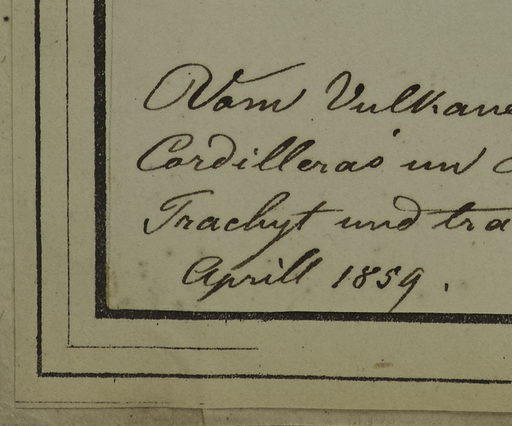 Vom Vulkane
Cordilleras un
Trachyt und tra
Aprill 1859.